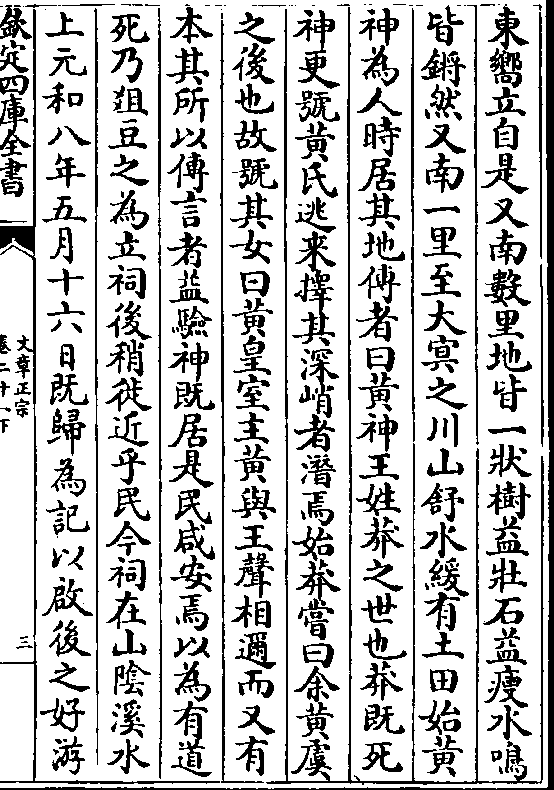 東嚮立自是又南數里地皆一狀樹益壯石益瘦水鳴
皆鏘然又南一里至大㝠之川山舒水緩有土田始黃
神為人時居其地傳者曰黃神王姓莽之世也莽既死
神更號黃氏逃来擇其深峭者潛焉始莽嘗曰余黃虞
之後也故號其女曰黃皇室主黃與王聲相邇而又有
本其所以傳言者益驗神既居是民咸安焉以為有道
死乃俎豆之為立祠後稍徙近乎民今祠在山陰溪水
上元和八年五月十六日既歸為記以啟後之好游
欽定四庫全書
文章正宗
卷二十一下
三